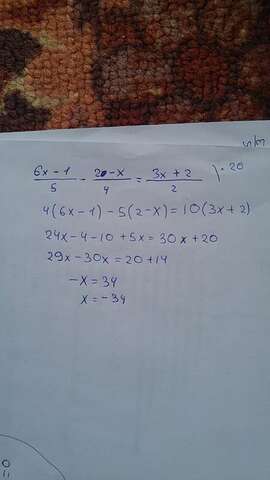 (6x - 1)/5 - (2-x)/4 = (3x + 2)/2 \ · 20
4(6x-1)-5(2-x)=10(3x+2)
24x-4-10+5x=30x+20
29x-30x=20+14
-x=34
x=-34